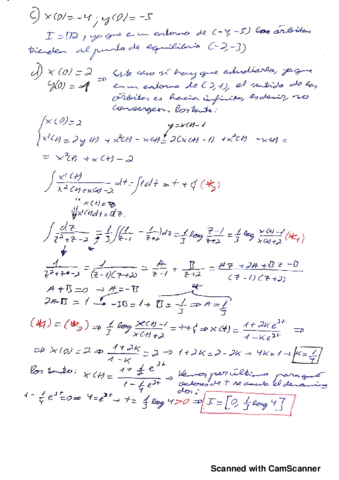 c) x(0)=-4; y(0)=-5
I=ℝ, ya que en un entorno de (-4,-5) las órbitas
tienden al punto de equilibrio (-2,-3)
d) x(0)=2
y(0)=1 ⇒ Este caso sí hay que estudiarlo, ya que
en un entorno de (2,1), el sentido de las
órbitas es hacia infinito, es decir, no
convergen. Por tanto:
x(0)=2
y=x(t)-1
x'(t)=2y(t)+x²(t)-x(t)=2(x(t)-1)+x²(t)-x(t)=
=x²(t)+x(t)-2
∫ x'(t)/(x²(t)+x(t)-2) dt=∫1dt=t+C (*2)
x(t)=z
x'(t)dt=dz
∫ dz/(z²+z-2) = 1/3 ∫(1/(z-1) - 1/(z+2))dz = 1/3 log (z-1)/(z+2) = 1/3 log (x(t)-1)/(x(t)+2) (*1)
1/(z²+z-2) = 1/((z-1)(z+2)) = A/(z-1) + B/(z+2) = (Az+2A+Bz-B)/((z-1)(z+2))
A+B=0 → A=-B
2A-B=1 → -3B=1 → B=-1/3 ⇒ A=1/3
(*1)=(*2) ⇒ 1/3 log (x(t)-1)/(x(t)+2) = t+C ⇒ x(t)= (1+2Ke^3t)/(1-Ke^3t) ⇒
⇒ x(0)=2 ⇒ (1+2K)/(1-K)=2 → 1+2K=2-2K → 4K=1 → K=1/4
Por tanto: x(t)= (1+1/2 e^3t)/(1-1/4 e^3t) → Vemos por último para qué
valores de t se anula el denominador:
1-1/4 e^3t=0 ⇒ 4=e^3t → t=1/3 log 4>0 ⇒ I=[0, 1/3 log 4]
Scanned with CamScanner